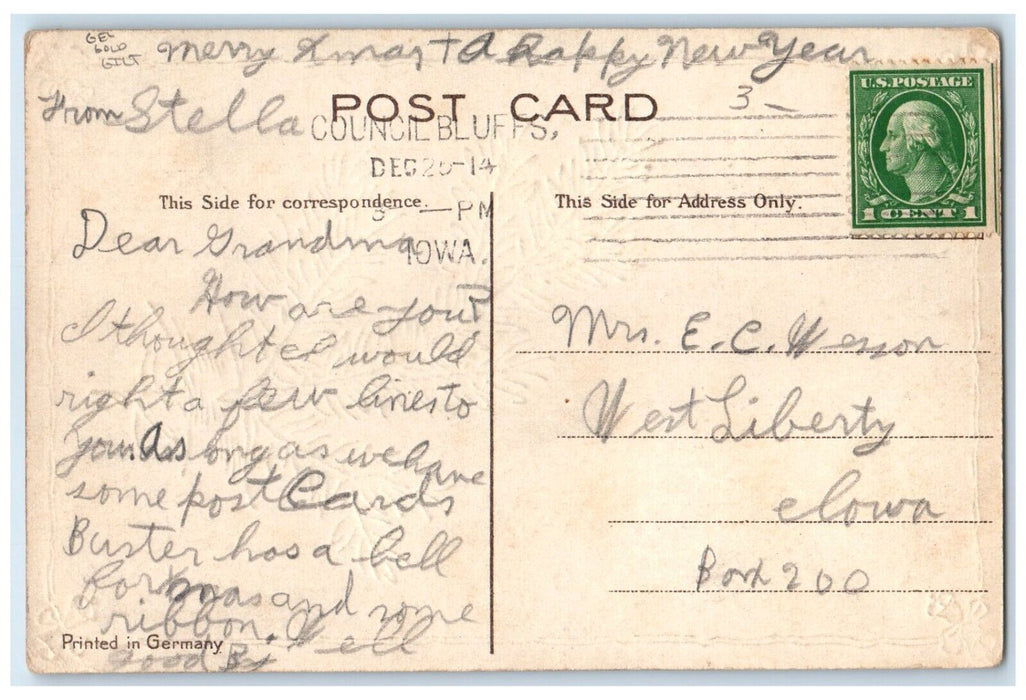 GEL
GOLD
GILT
Merry Xmas + A Happy New Year
From Stella
POST CARD
3-
COUNCIL BLUFFS,
DEC 26-14
-PM
IOWA.
U.S. POSTAGE
1 CENT 1
This Side for correspondence.
Dear Grandma
How are you?
I thought I would
right a few lines to
you. As long as we have
some post Cards
Buster has a bell
for xmas and some
ribbon. Well
Good By
Printed in Germany
This Side for Address Only.
Mrs. E. C. Wesson
West Liberty
Iowa
Box 200